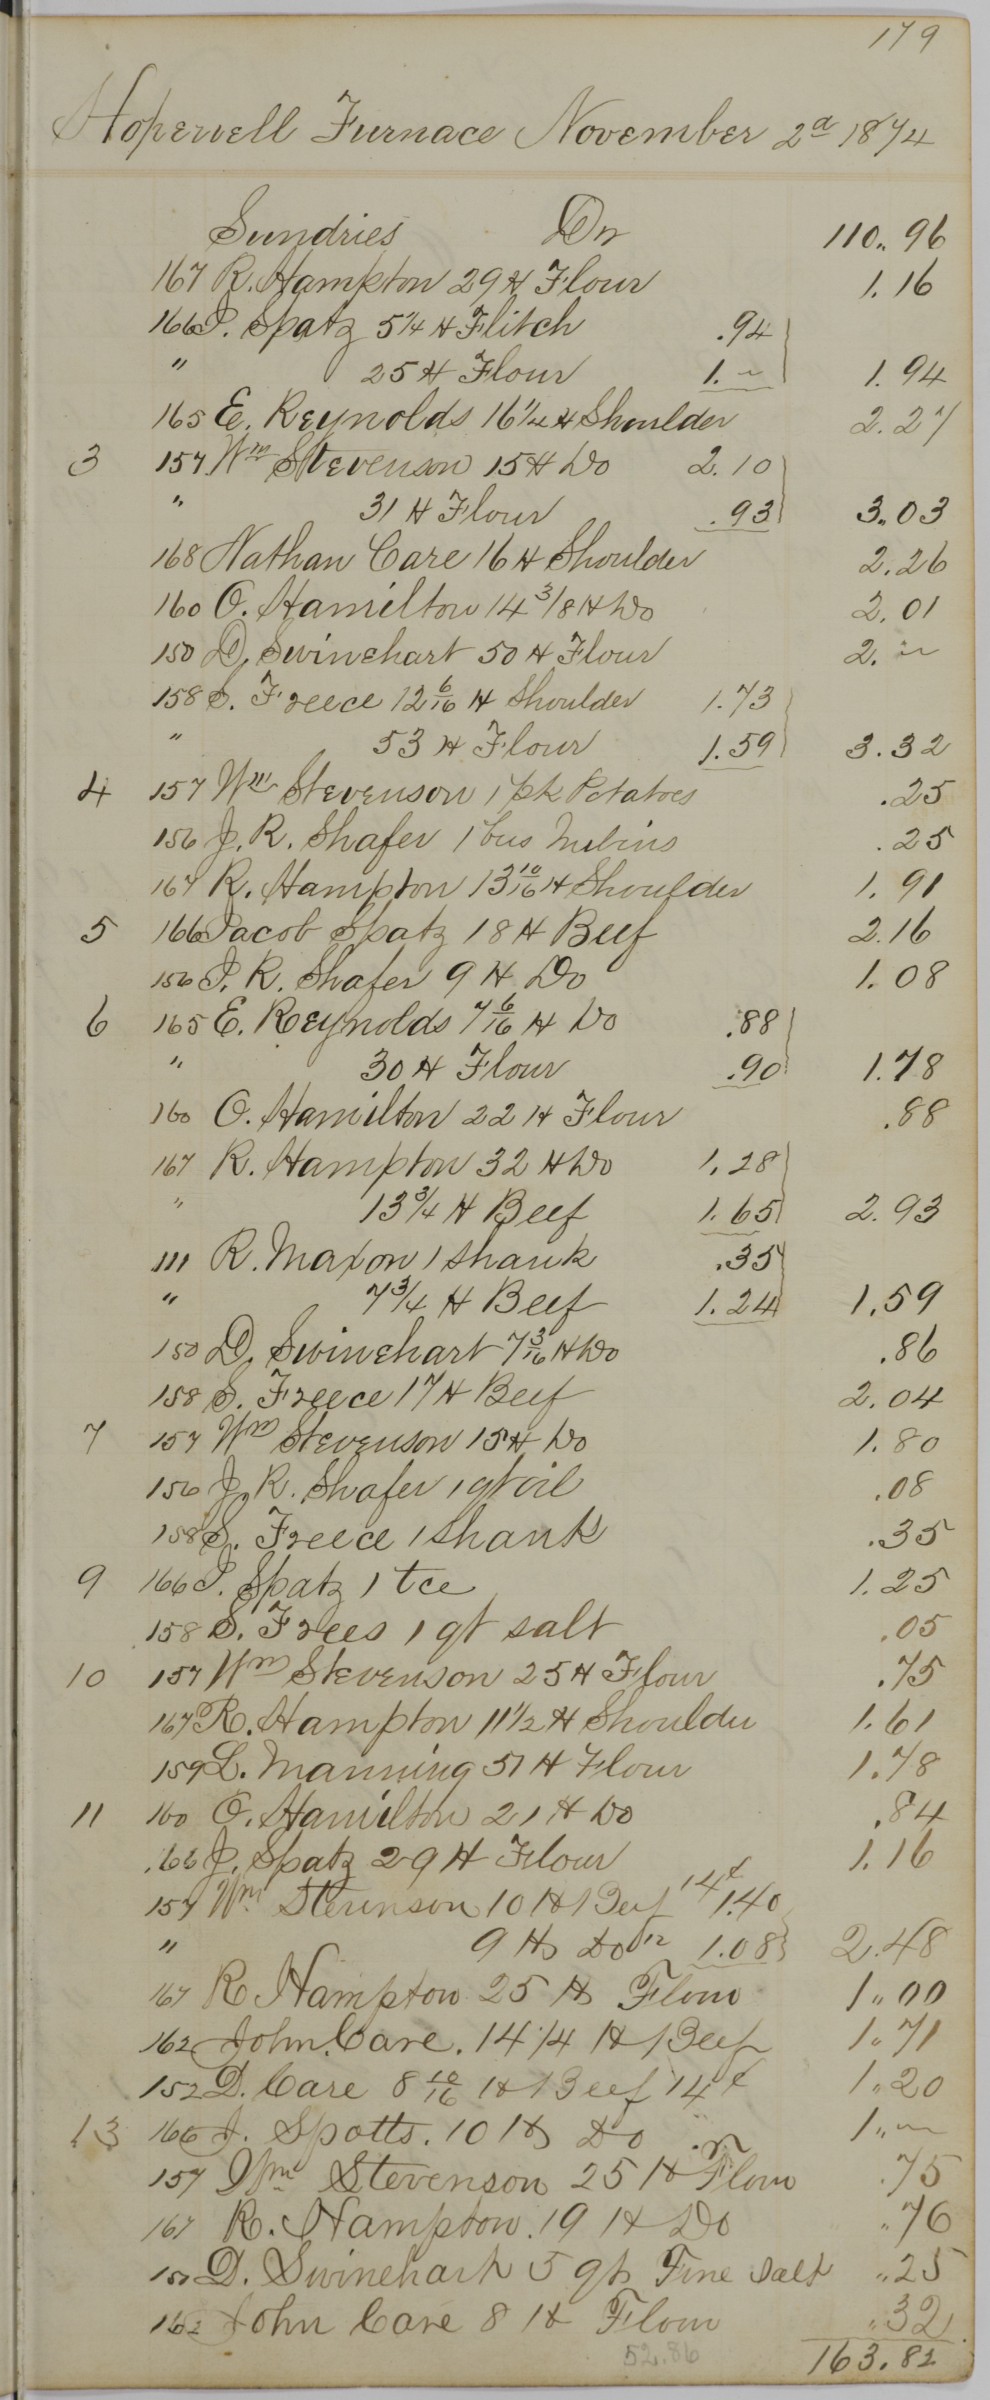 179
Hopewell Furnace November 2d 1874
Sundries Dr 110.. 96
167 R. Hampton 29 # Flour 1.16
166 J. Spatz 5 1/4 # Flitch .94
" 25 # Flour 1. ~ 1.94
165 E. Reynolds 16 1/4 # Shoulder 2.27
3 157 Wm Stevenson 15 # Do 2.10
" 31 # Flour .93 3..03
168 Nathan Care 16 # Shoulder 2.26
160 O. Hamilton 14 3/8 # Do 2.01
150 D. Swinehart 50 # Flour 2. ~
158 S. Freece 12 6/16 # Shoulder 1.73
" 53 # Flour 1.59 3.32
4 157 Wm Stevenson 1 pk Potatoes .25
156 J. R. Shafer 1 bus Nubins .25
167 R. Hampton 13 10/16 # Shoulder 1.91
5 166 Jacob Spatz 18 # Beef 2.16
156 J. R. Shafer 9 # Do 1.08
6 165 E. Reynolds 7 6/16 # Do .88
" 30 # Flour .90 1.78
160 O. Hamilton 22 # Flour .88
167 R. Hampton 32 # Do 1.28
" 13 3/4 # Beef 1.65 2.93
111 R. Maxon 1 shank .35
" 7 3/4 # Beef 1.24 1.59
150 D. Swinehart 7 3/16 # Do .86
158 S. Freece 17 # Beef 2.04
7 157 Wm Stevenson 15 # Do 1.80
156 J. R. Shafer 1 qt oil .08
158 S. Freece 1 Shank .35
9 166 J. Spatz 1 tce 1.25
158 S. Frees 1 qt salt .05
10 157 Wm Stevenson 25 # Flour .75
167 R. Hampton 11 1/2 # Shoulder 1.61
159 L. Manning 51 # Flour 1.78
11 160 O. Hamilton 21 # Do .84
166 J. Spatz 29 # Flour 1.16
157 Wm Stevenson 10 # Beef 14¢ 1.40
" 9 #s Do 12 1.08 2.48
167 R Hampton 25 #s Flour 1..00
162 John Care. 14 1/4 # Beef 1.71
152 D. Care 8 10/16 # Beef 14¢ 1..20
13 166 J. Spotts. 10 #s Do 1.. ~
157 Wm Stevenson 25 # Flour .75
167 R. Hampton. 19 # Do ..76
150 D. Swinehart 5 qts Fine Salt ..25
162 John Care 8 # Flour ..32
52.86 163.82